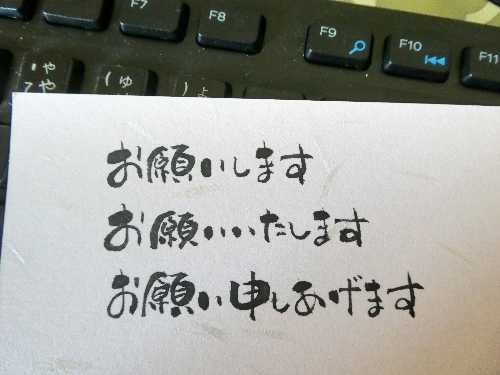 F7
F8
F9
F10
F11
や
7 や
( ゅ
) ょ
お願いします
お願いいたします
お願い申しあげます